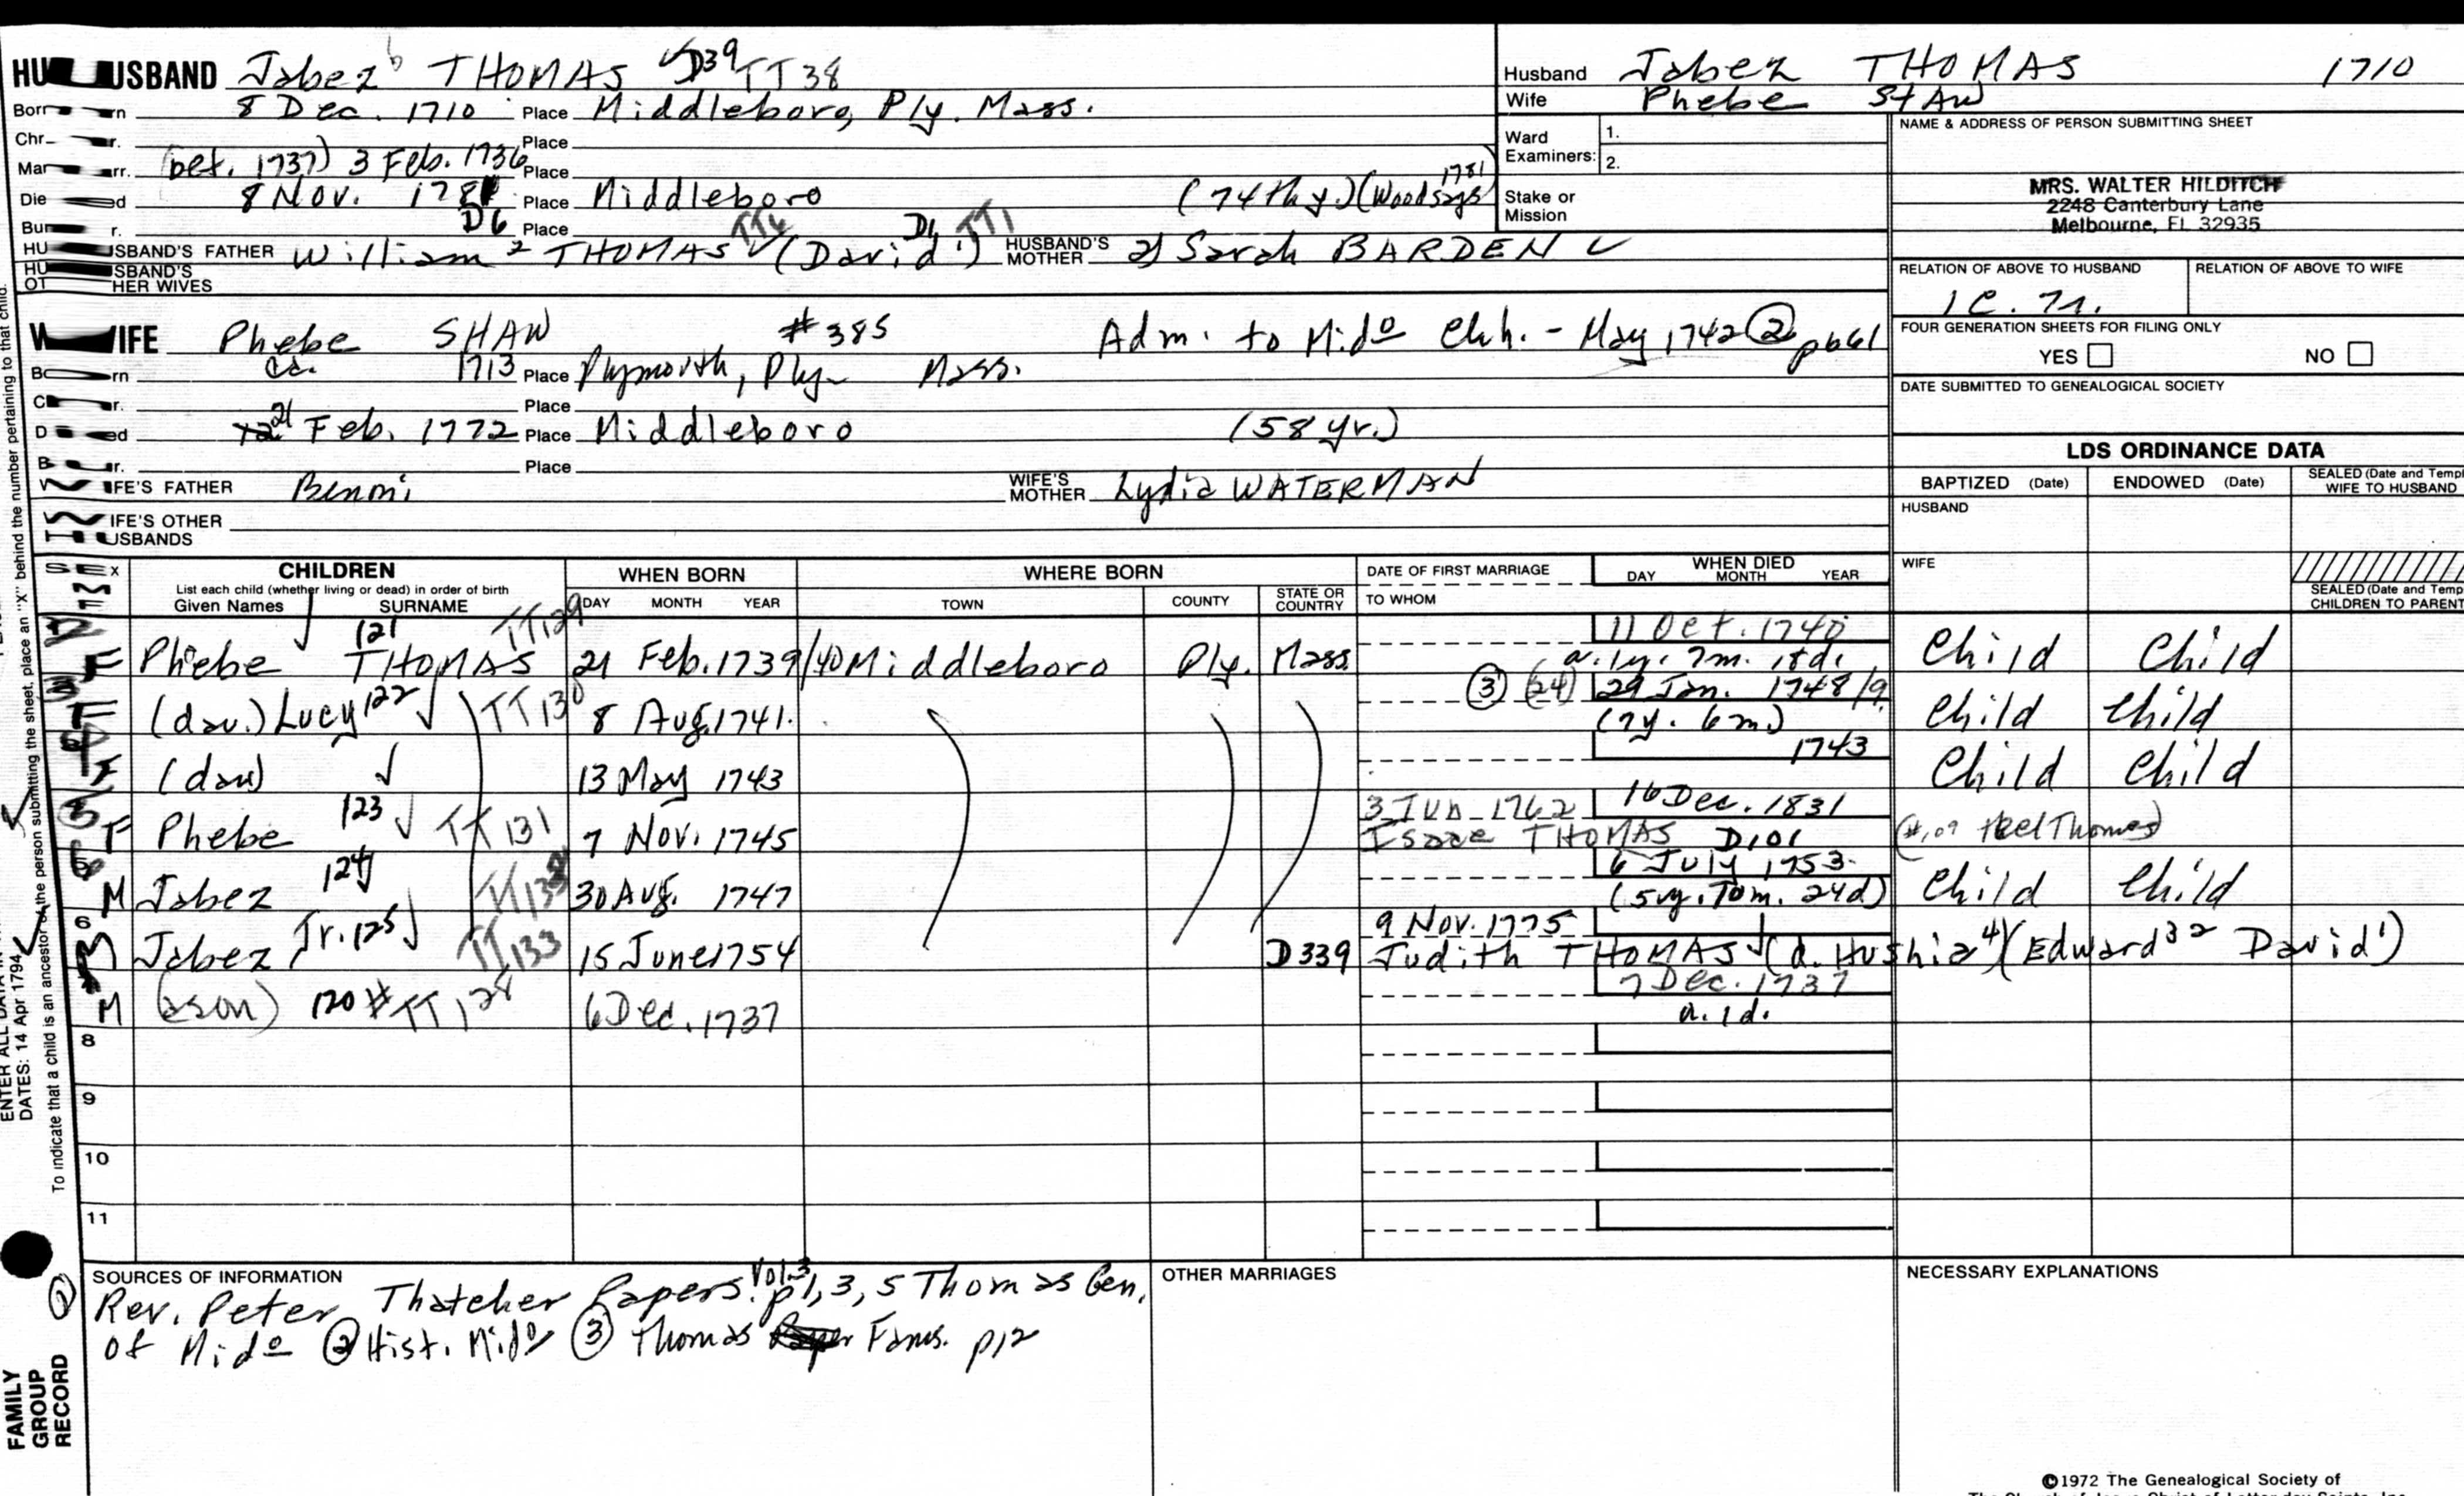 HUSBAND Jabez THOMAS D39 TT38
Born 8 Dec. 1710 Place Middleboro, Ply. Mass.
Chr. Place
Marr. (bef. 1737) 3 Feb. 1736 Place
Died 8 Nov. 178 Place Middleboro (74th y.) (Wood says 1781
Bur. Place
D6 TT6 D1 TT1
HUSBAND'S FATHER William 2 THOMAS (David 1) HUSBAND'S MOTHER 2) Sarah BARDEN
HUSBAND'S OTHER WIVES
WIFE Phebe SHAW #385 Adm. to Mido Chh. - May 1742 (2) p661
Born ca. 1713 Place Plymouth, Ply- Mass.
Chr. Place
Died 21 Feb. 1772 Place Middleboro (58 yr.)
Bur. Place
WIFE'S FATHER Benoni WIFE'S MOTHER Lydia WATERMAN
WIFE'S OTHER HUSBANDS
Husband Jabez THOMAS 1710
Wife Phebe SHAW
Ward Examiners: 1.
2.
Stake or Mission
NAME & ADDRESS OF PERSON SUBMITTING SHEET
MRS. WALTER HILDITCH
2248 Canterbury Lane
Melbourne, FL 32935
RELATION OF ABOVE TO HUSBAND RELATION OF ABOVE TO WIFE
FOUR GENERATION SHEETS FOR FILING ONLY
YES NO
DATE SUBMITTED TO GENEALOGICAL SOCIETY
LDS ORDINANCE DATA
BAPTIZED (Date) ENDOWED (Date) SEALED (Date and Templ
WIFE TO HUSBAND
HUSBAND
WIFE
SEALED (Date and Temp
CHILDREN TO PARENT
SEX CHILDREN
List each child (whether living or dead) in order of birth
Given Names SURNAME
WHEN BORN
DAY MONTH YEAR
WHERE BORN
TOWN COUNTY STATE OR COUNTRY
DATE OF FIRST MARRIAGE
TO WHOM
WHEN DIED
DAY MONTH YEAR
121 TT129 11 Oct. 1740
F Phebe THOMAS 21 Feb. 1739/40 Middleboro Ply. Mass a. 1y. 7m. 18d. Child Child
(3) (24) 29 Jan. 1748/9
F (dau.) Lucy 122 TT130 8 Aug. 1741. (7y. 6m) Child Child
1743
F (dau) 13 May 1743 Child Child
123 3 Jun 1762 16 Dec. 1831
F Phebe TT131 7 Nov. 1745 Isaac THOMAS D101
124 6 July 1753
M Jabez TT132 30 Aug. 1747 (5y. 10m. 24d) Child Child
6 9 Nov. 1775
M Jabez Jr. 125 TT133 15 June 1754 D339 Judith THOMAS (d. Hushia 4) (Edward 3 2 David 1)
7 Dec. 1737
M (son) 120 # TT128 6 Dec. 1737 a. 1d.
8
9
10
11
SOURCES OF INFORMATION
Rev. Peter Thatcher Papers. Vol. 3 p1, 3, 5 Thomas Gen.
of Mido (2) Hist. Mido (3) Thomas Fams. p12
OTHER MARRIAGES
NECESSARY EXPLANATIONS
©1972 The Genealogical Society of
To indicate that a child is an ancestor of the person submitting the sheet, place an "X" behind the number pertaining to that child.
DATES: 14 Apr 1794
FAMILY
GROUP
RECORD